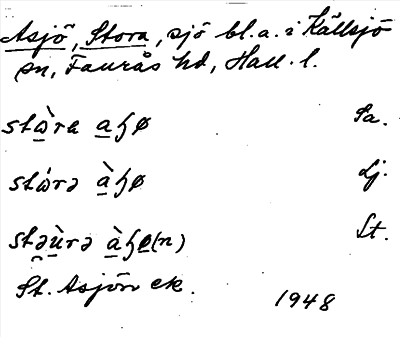 Asjö, Stora, sjö bl.a. i Källsjö
sn, Faurås hd, Hall. l.
stὼra aɧø Sa.
stὼrə àɧø Lj.
stəùrə àɧø(n) St.
St. Asjön ek.
1948